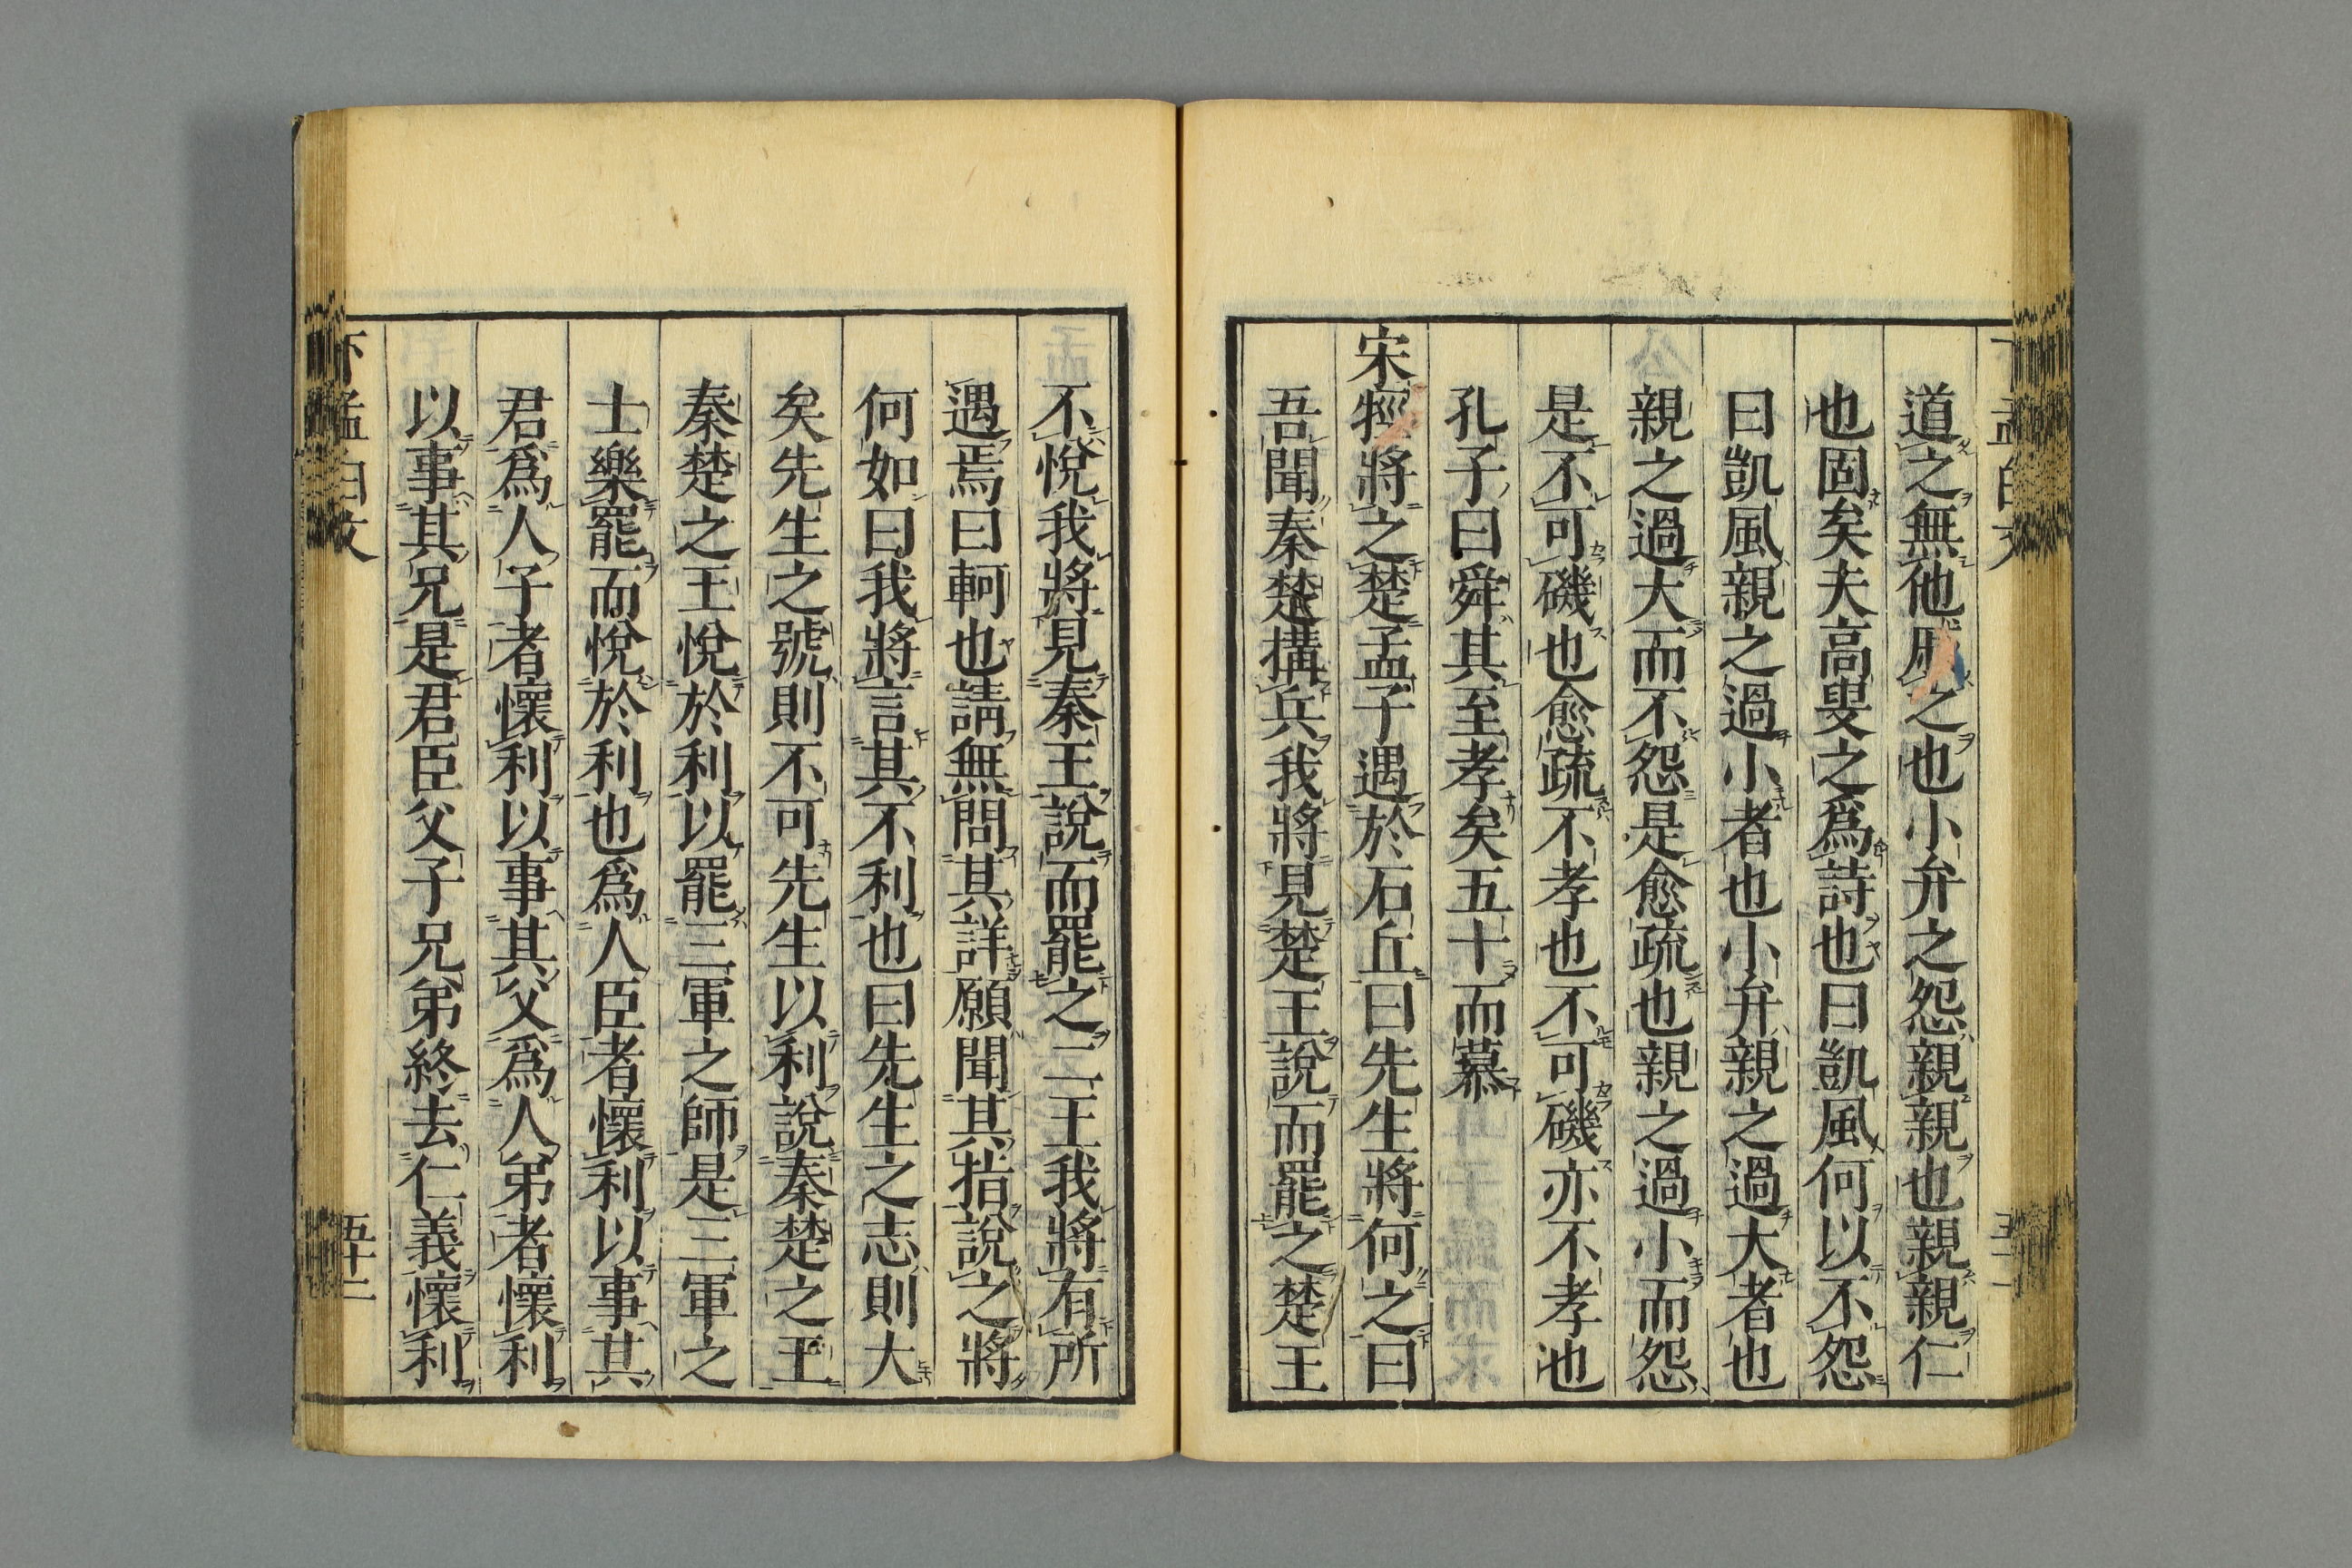 道之無他戚之也小弁之怨親親也親親仁
也固矣夫高叟之爲詩也曰凱風何以不怨
曰凱風親之過小者也小弁親之過大者也
親之過大而不怨是愈疏也親之過小而怨
是不可磯也愈疏不孝也不可磯亦不孝也
孔子曰舜其至孝矣五十而慕
宋牼將之楚孟子遇於石丘曰先生將何之曰
吾聞秦楚搆兵我將見楚王說而罷之楚王
不悅我將見秦王說而罷之二王我將有所
遇焉曰軻也請無問其詳願聞其指說之將
何如曰我將言其不利也曰先生之志則大
矣先生之號則不可先生以利說秦楚之王
秦楚之王悅於利以罷三軍之師是三軍之
士樂罷而悅於利也爲人臣者懷利以事其
君爲人子者懷利以事其父爲人弟者懷利
以事其兄是君臣父子兄弟終去仁義懷利
下孟白文
五十二